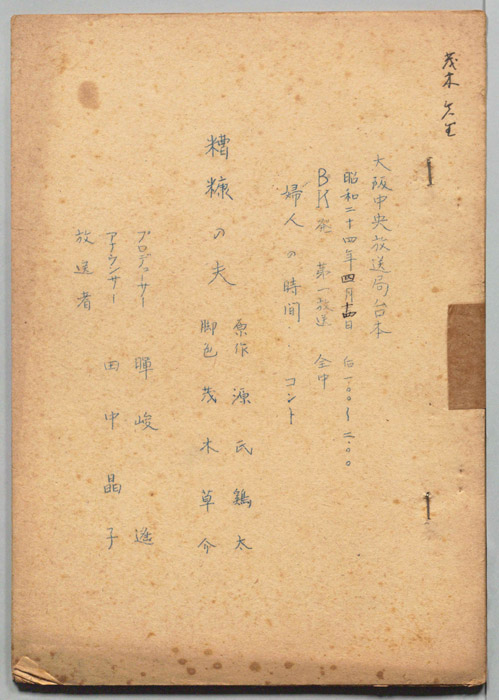 茂木
大阪中央放送局台本
昭和二十四年四月十四日 自一.〇〇〜二.〇〇
BK発 第一放送 全中
婦人の時間 コント
糟糠の夫
原作 源氏鶏太
脚色 茂木草介
プロデューサー 暉峻
アナウンサー 田中晶子
放送者